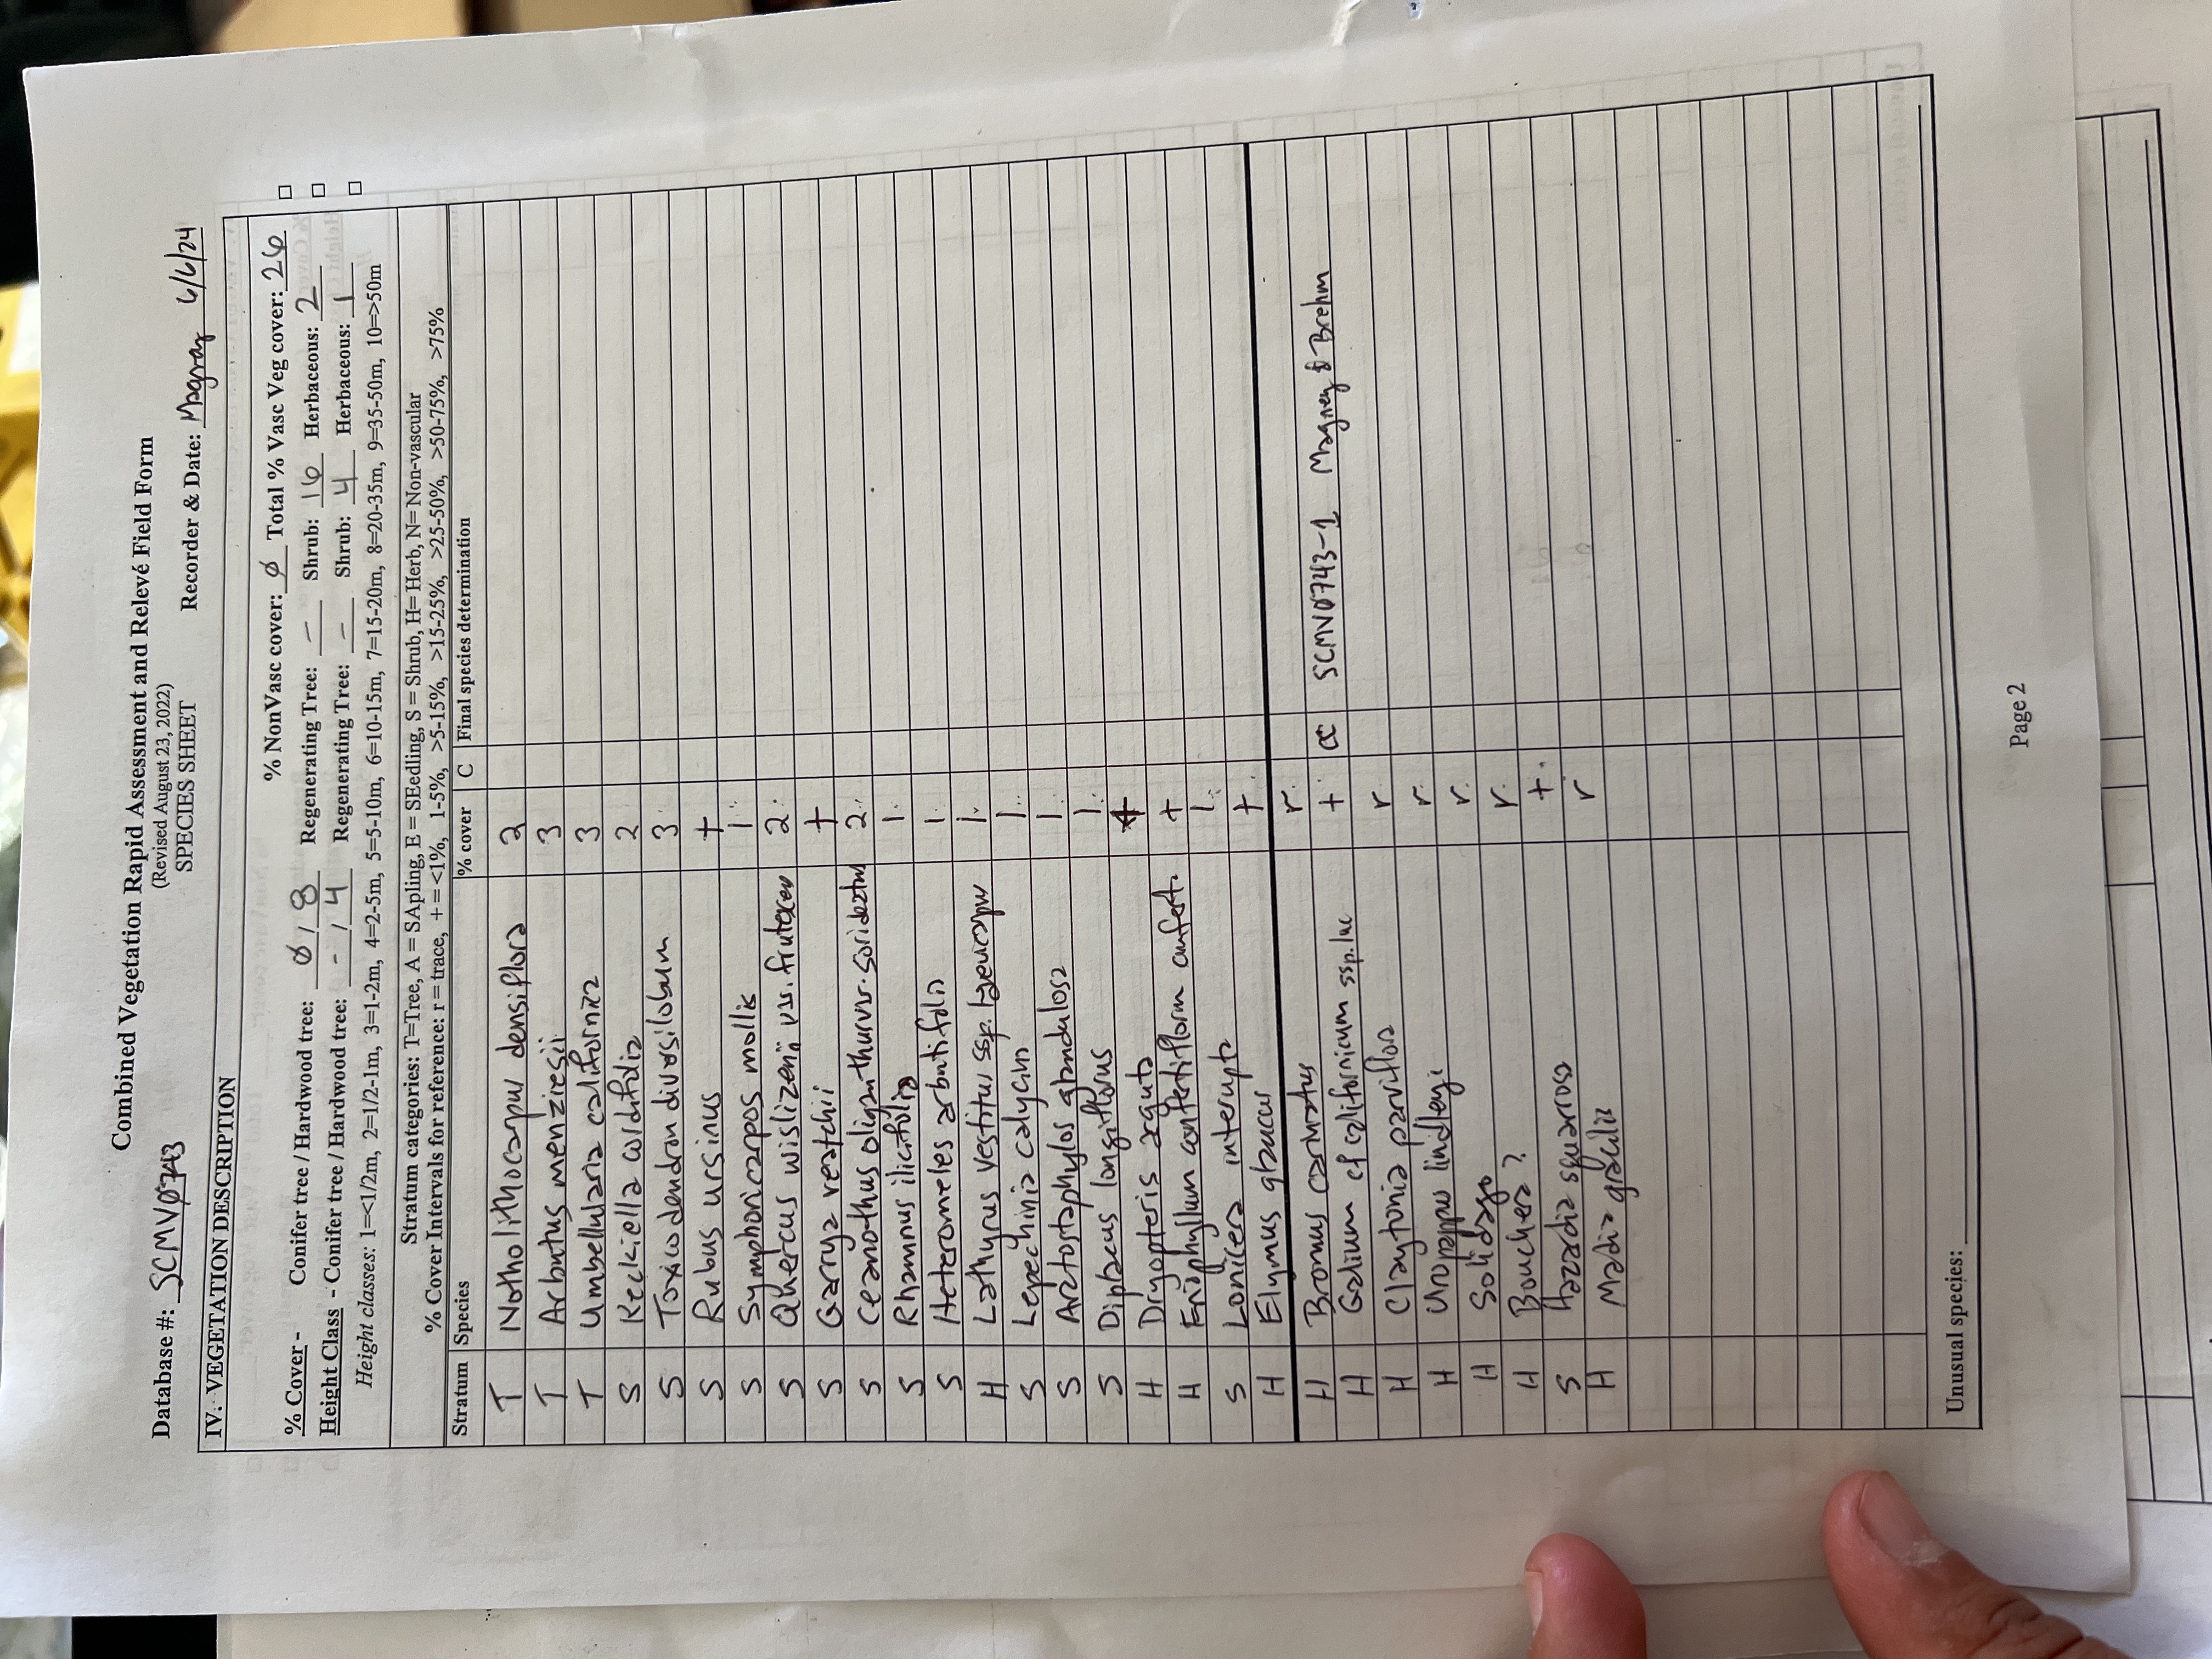 Combined Vegetation Rapid Assessment and Relevé Field Form
(Revised August 23, 2022)
SPECIES SHEET
Database #: SCMVØ743 Recorder & Date: Magney 6/6/24
IV. VEGETATION DESCRIPTION
% NonVasc cover: Ø Total % Vasc Veg cover: 26
% Cover - Conifer tree / Hardwood tree: Ø / 8 Regenerating Tree: — Shrub: 16 Herbaceous: 2
Height Class - Conifer tree / Hardwood tree: - / 4 Regenerating Tree: — Shrub: 4 Herbaceous: 1
Height classes: 1=<1/2m, 2=1/2-1m, 3=1-2m, 4=2-5m, 5=5-10m, 6=10-15m, 7=15-20m, 8=20-35m, 9=35-50m, 10=>50m
Stratum categories: T=Tree, A = SApling, E = SEedling, S = Shrub, H= Herb, N= Non-vascular
% Cover Intervals for reference: r = trace, + = <1%, 1-5%, >5-15%, >15-25%, >25-50%, >50-75%, >75%
Stratum Species % cover C Final species determination
T Notholithocarpus densiflora 2
T Arbutus menziesii 3
T Umbellularia californica 3
S Keckiella cordifolia 2
S Toxicodendron diversilobum 3
S Rubus ursinus +
S Symphoricarpos mollis 1
S Quercus wislizenii var. frutescens 2
S Garrya veatchii +
S Ceanothus oliganthus var. sorediatus 2
S Rhamnus ilicifolia 1
S Heteromeles arbutifolia 1
H Lathyrus vestitus ssp. 1
S Lepechinia calycina 1
S Arctostaphylos glandulosa 1
S Diplacus longiflorus 1
H Dryopteris arguta +
H Eriophyllum confertiflorum confert. +
S Lonicera interrupta 1
H Elymus glaucus +
H Bromus carinatus r
H Galium cf californicum ssp. luc + CC SCMVØ743-1 Magney & Brehm
H Claytonia parviflora r
H Uropappus lindleyi r
H Solidago r
H r
S Hazardia squarrosa +
H Madia gracilis r
Unusual species:
Page 2